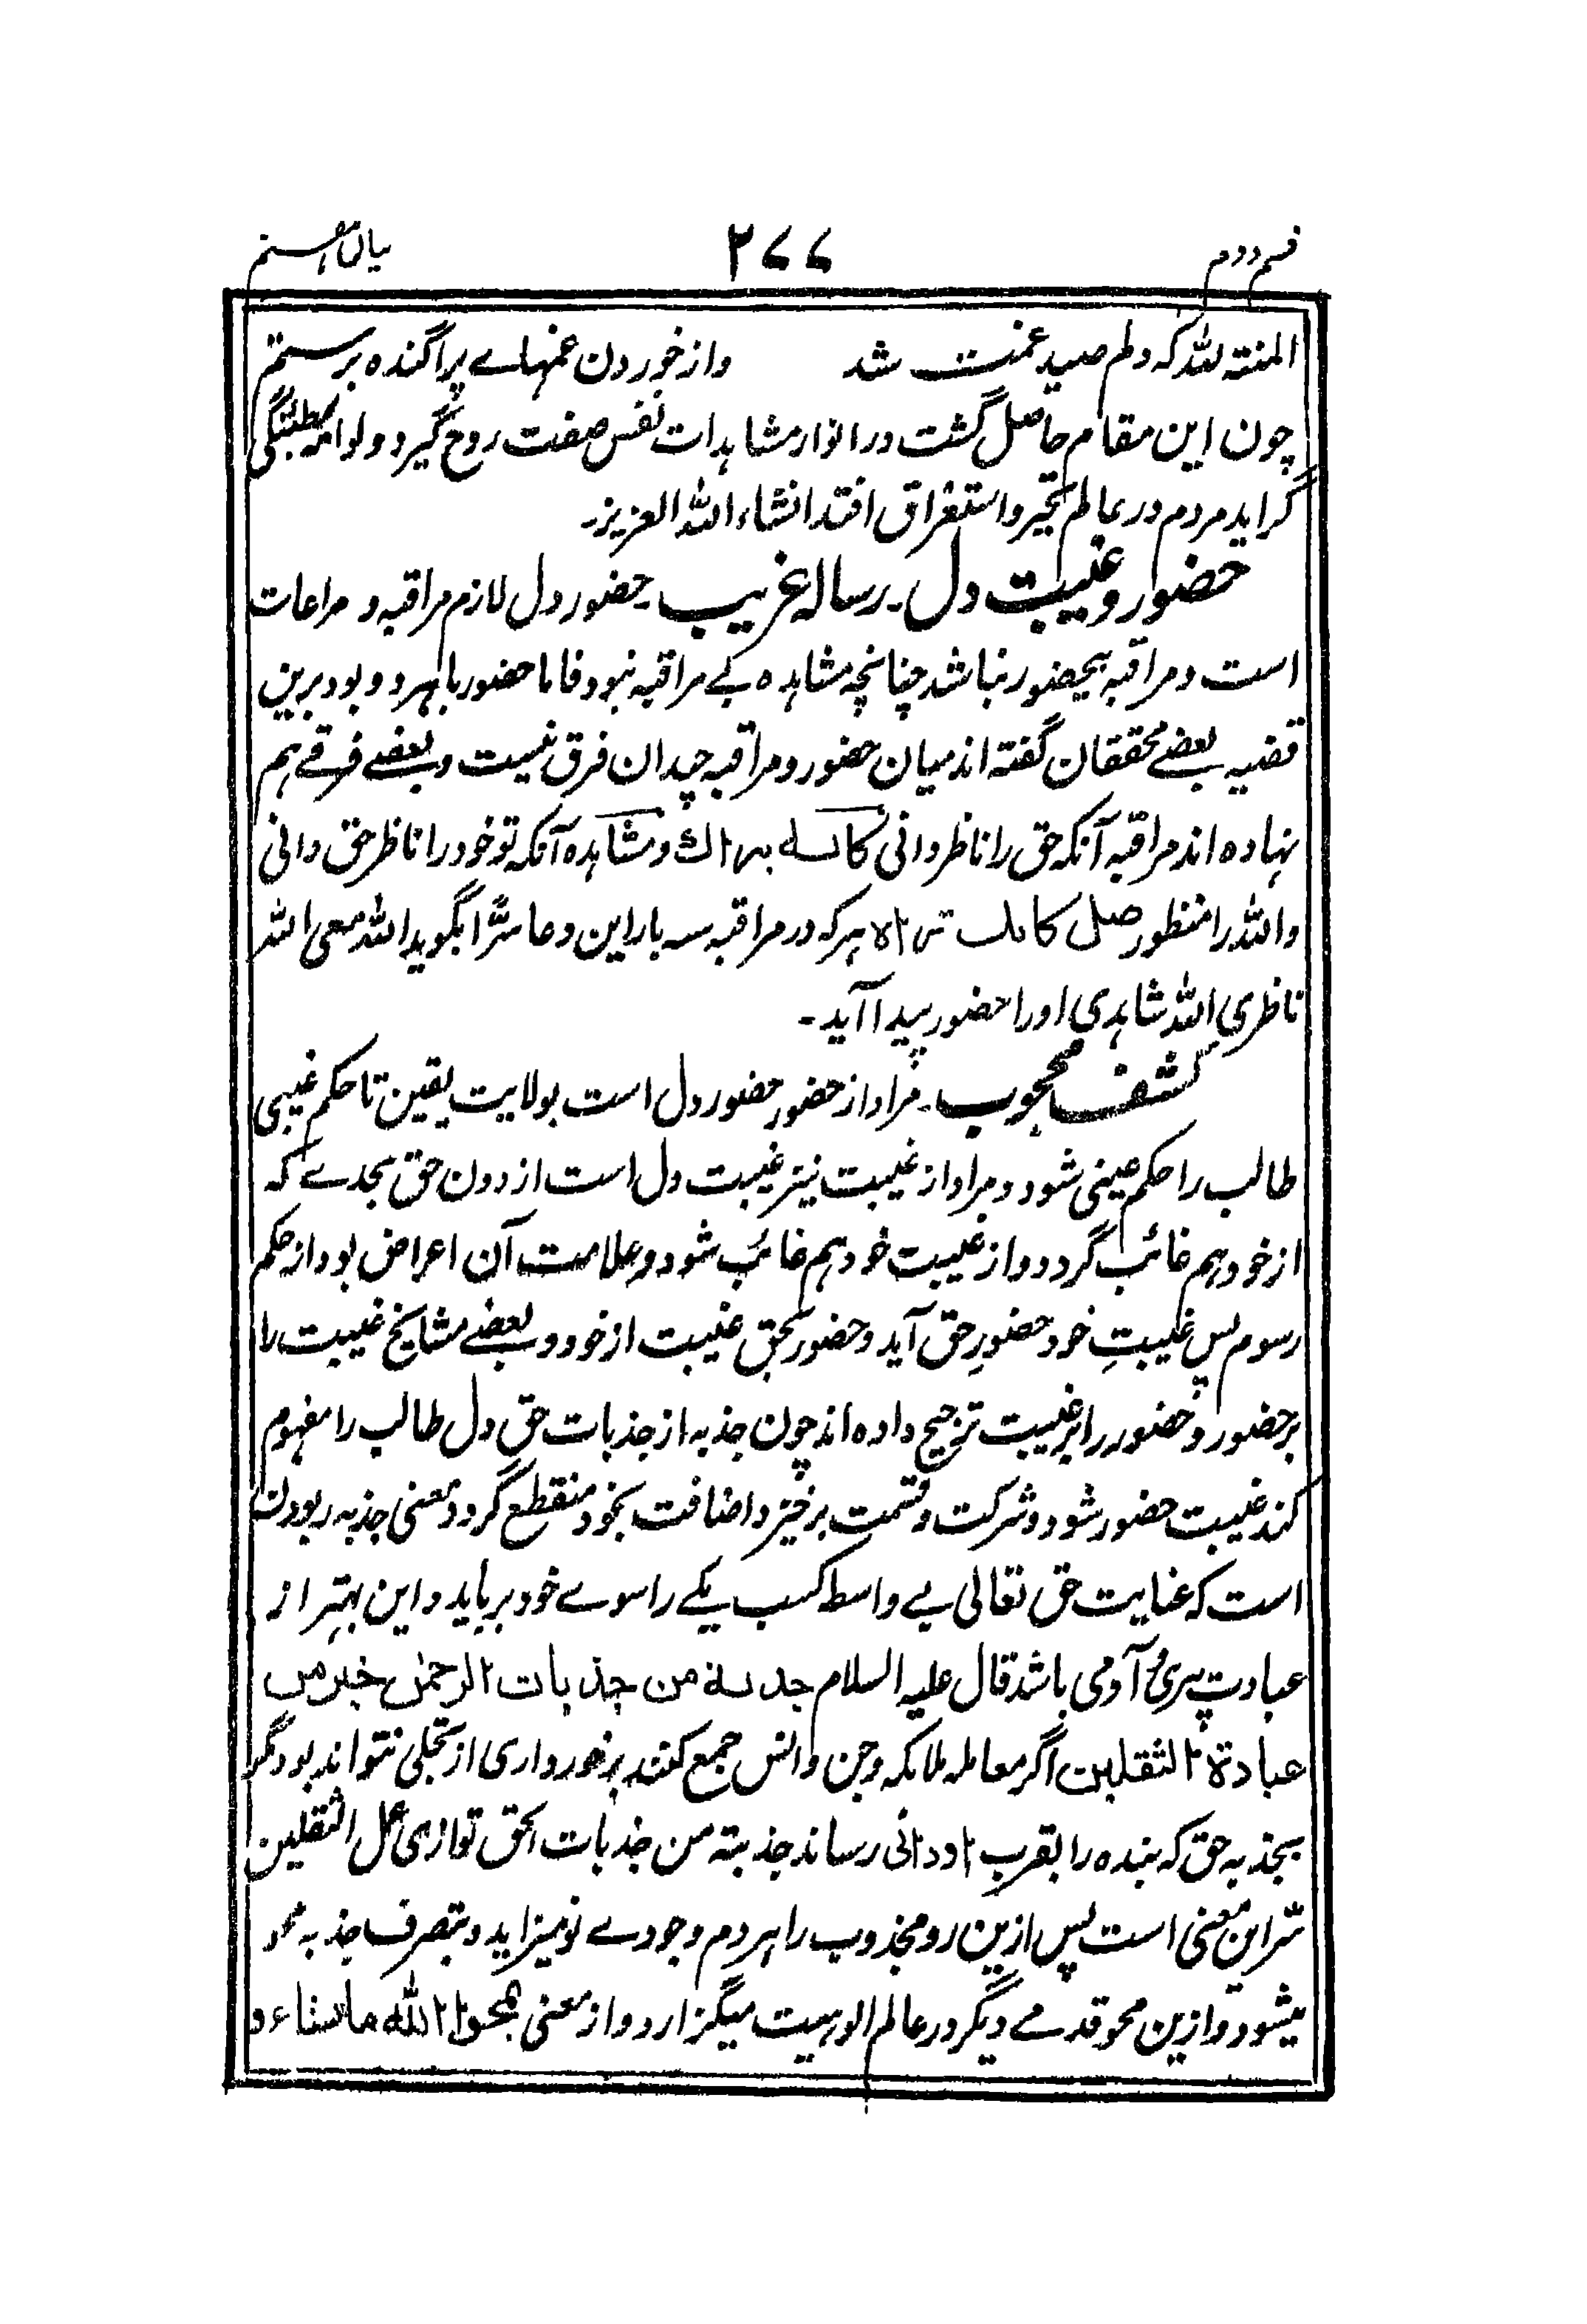 قسم دوم ۲۷۷ بیان هشتم
المنته لله که دلم صید غمت شد وز خوردن غمهاے پراگنده برستم
چون این مقام حاصل گشت در انوار مشاهدات نفس صفت روح گیرد و لوامه مطمئنگی
گراید مردم در عالم تحیر و استغراق افتد انشاء الله العزیز۔
حضور و غیبت دل۔ رساله غریب۔ حضور دل لازم مراقبه و مراعات
است و مراقبه بیحضور نباشد چنانچه مشاهده بے مراقبه نبود فاما حضور باهر دو بود برین
قضیه بعضے محققان گفته اند میان حضور و مراقبه چندان فرق نیست و بعضے فرقے هم
نهاده اند مراقبه آنکه حق را ناظر دانی کانه یراك و مشاهده آنکه تو خود را ناظر حق دانی
و الله را منظور صل کانك تراه هر که در مراقبه سه بار این دعا سرًّا بگوید الله معی الله
ناظری الله شاهدی او را حضور پیدا آید۔
کشف محجوب۔ مراد از حضور حضور دل است بولایت یقین تا حکم غیبی
طالب را حکم عینی شود و مراد از غیبت نیز غیبت دل است از دون حق بحدے که
از خود هم غائب گردد و از غیبت خود هم غائب شود و علامت آن اعراض بود از حکم
رسوم پس غیبتِ خود حضورِ حق آید و حضور بحق غیبت از خود و بعضے مشایخ غیبت را
بر حضور و حضور را بر غیبت ترجیح داده اند چون جذبه از جذبات حق دل طالب را مفهوم
کند غیبت حضور شود و شرکت و قسمت برخیزد اضافت بخود منقطع گردد معنی جذبه ربودن
است که عنایت حق تعالی بے واسطه کسب یکے را سوے خود برباید و این بهتر از
عبادت پری و آدمی باشد قال علیه السلام جذبة من جذبات الرحمن خیر من
عبادة الثقلین اگر معامله ملائکه و جن و انس جمع کنند برخورداری از تجلی نتواند بود مگر
بجذبه حق که بنده را بقرب او ادنی رساند جذبته من جذبات الحق توازی عمل الثقلین
سّر این معنی است پس ازین رو مجذوب را هر دم وجودے نو میزاید و بتصرف جذبه محو
میشود و ازین محو قدمے دیگر در عالم الوهیت میگزارد و از معنی یمحوا الله ما یشاء و